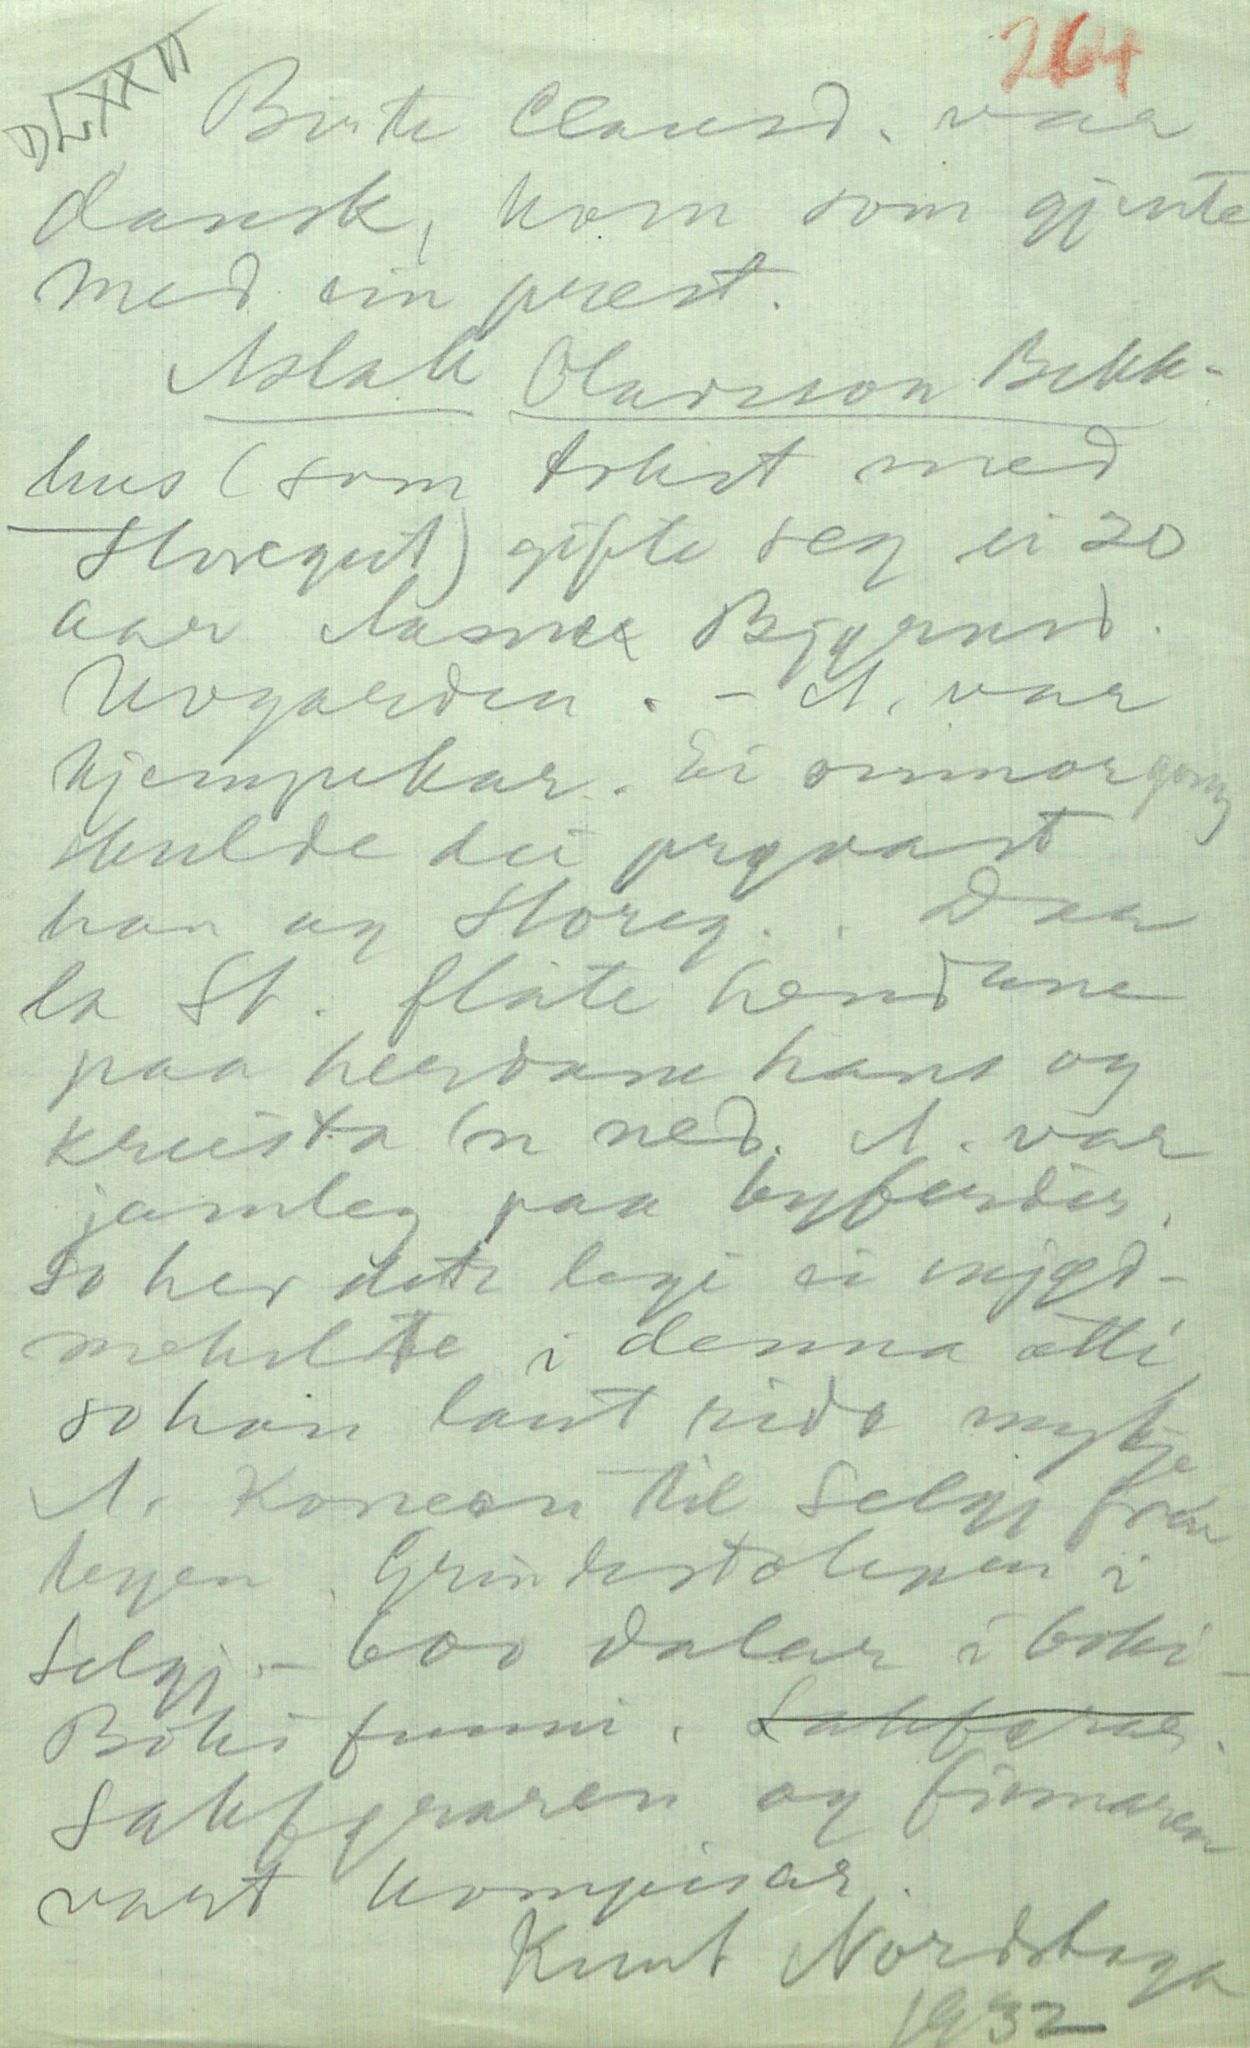 264
DLXXII
Birte Clausd. var
dansk, kom som gjente
med ein prest.
Aslak Olavsson Bekk-
hus (som tokst med
Storegut) gifte seg ei 20
aar Aasne Bjørnsd.
Uvgarden. - A. var
kjempekar. Ei onnor gong
skulde dei prøvast
han og Storeg.. Daa
la St. flate hendune
paa herdane hans og
kruista 'n ned. A. var
jamleg paa byferder,
so hev dotr legi ei
i denna ætti,
so han laut rida mykje
A. Koneen til Selgj fraa
heggen. Grindestolepen i
Selgj. - 600 dalar i boki -
Boki funni. Sakførar.
Sakføraren og finnaren
vart kompisar.
Knut Nordbøga
1932